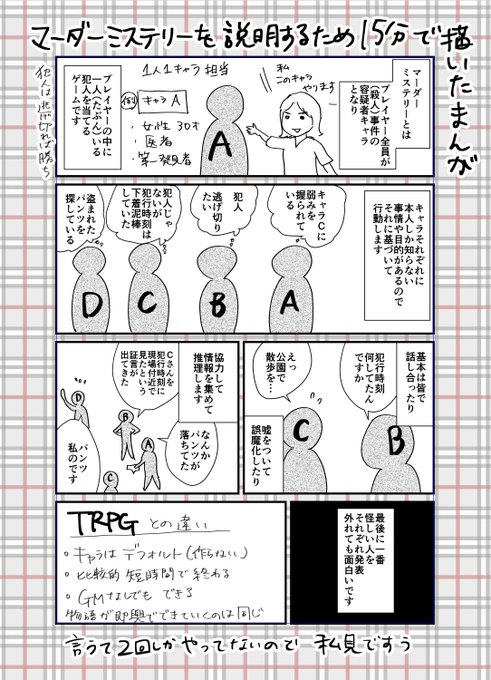 マーダーミステリーを説明するため15分で描いたまんが
マーダー
ミステリーとは
プレイヤー全員が
(殺人)事件の
容疑者キャラ
となり
私
このキャラ
やります
1人1キャラ担当
例
キャラA
・女性30才
・医者
・第一発見者
A
プレイヤーの中に
一人(たぶん)いる
犯人を当てる
ゲームです
犯人は逃げ切れば勝ち
キャラそれぞれに
本人しか知らない
事情や目的があるので
それに基づいて
行動します
キャラCに
弱みを
握られて
いる
A
犯人
逃げ切り
たい
B
犯人じゃ
ないが
犯行時刻は
下着泥棒
していた
C
盗まれた
パンツを
探している
D
基本は皆で
話し合ったり
犯行時刻
何してたん
ですか
B
えっ
公園で
散歩を…
C
嘘をついて
誤魔化したり
協力して
情報を集めて
推理します
Cさんを
犯行時刻に
現場付近で
見たという
証言が
出てきた
B
D
なんか
パンツが
落ちてた
A
パンツ
私のです
最後に一番
怪しい人を
それぞれ発表
外れても面白いです
TRPGとの違い
・キャラはデフォルト(作らない)
・比較的短時間で終わる
・GMなしでもできる
物語が即興でできていくのは同じ
言うて2回しかやってないので 私見ですう